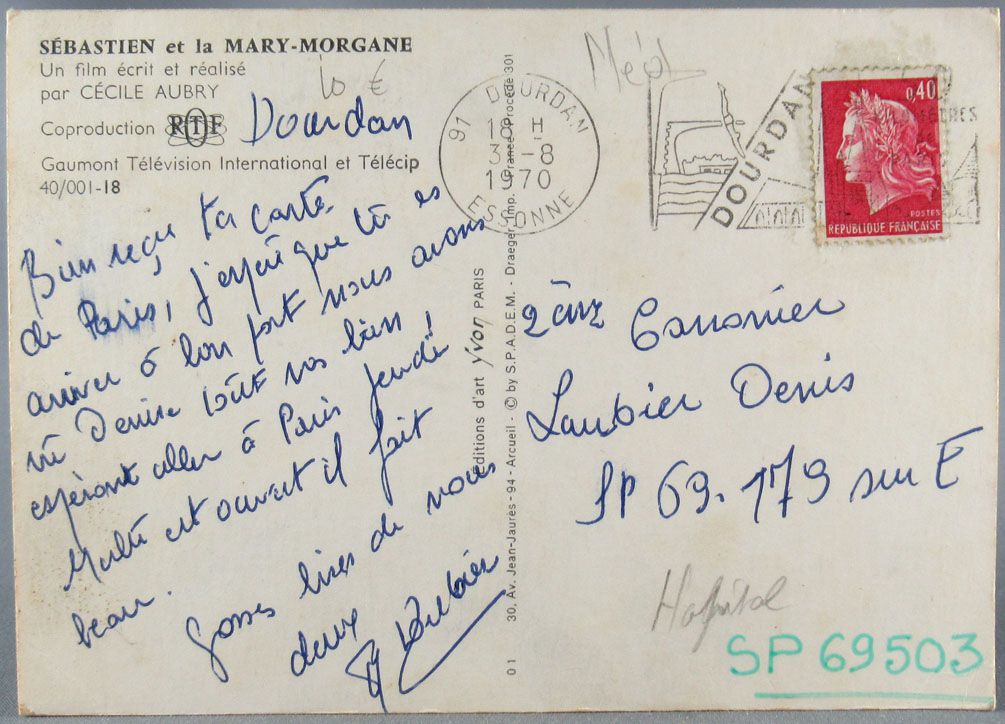 SÉBASTIEN et la MARY-MORGANE
Un film écrit et réalisé
par CÉCILE AUBRY
10 €
Coproduction RTF
Dourdan
Gaumont Télévision International et Télécip
40/001-18
Bien reçu ta carte
de Paris, j'espère que tu es
arriver à bon port nous avons
vu Denise tout vas bien,
espèront aller à Paris jeudi
Malté est ouvert il fait
beau.
Grosses bises de nous
deux
éditions d'art yvon PARIS
30, Av. Jean-Jaurès - 94 - Arcueil - © by S.P.A.D.E.M. - Draeger Imp. (France) Procédé 301
01
91 DOURDAN
18 H
3-8
1970
ESSONNE
DOURDAN
0,40
POSTES
REPUBLIQUE FRANÇAISE
2ème Canonnier
Laubier Denis
SP 69.179 sur E
Hopital
SP 69503